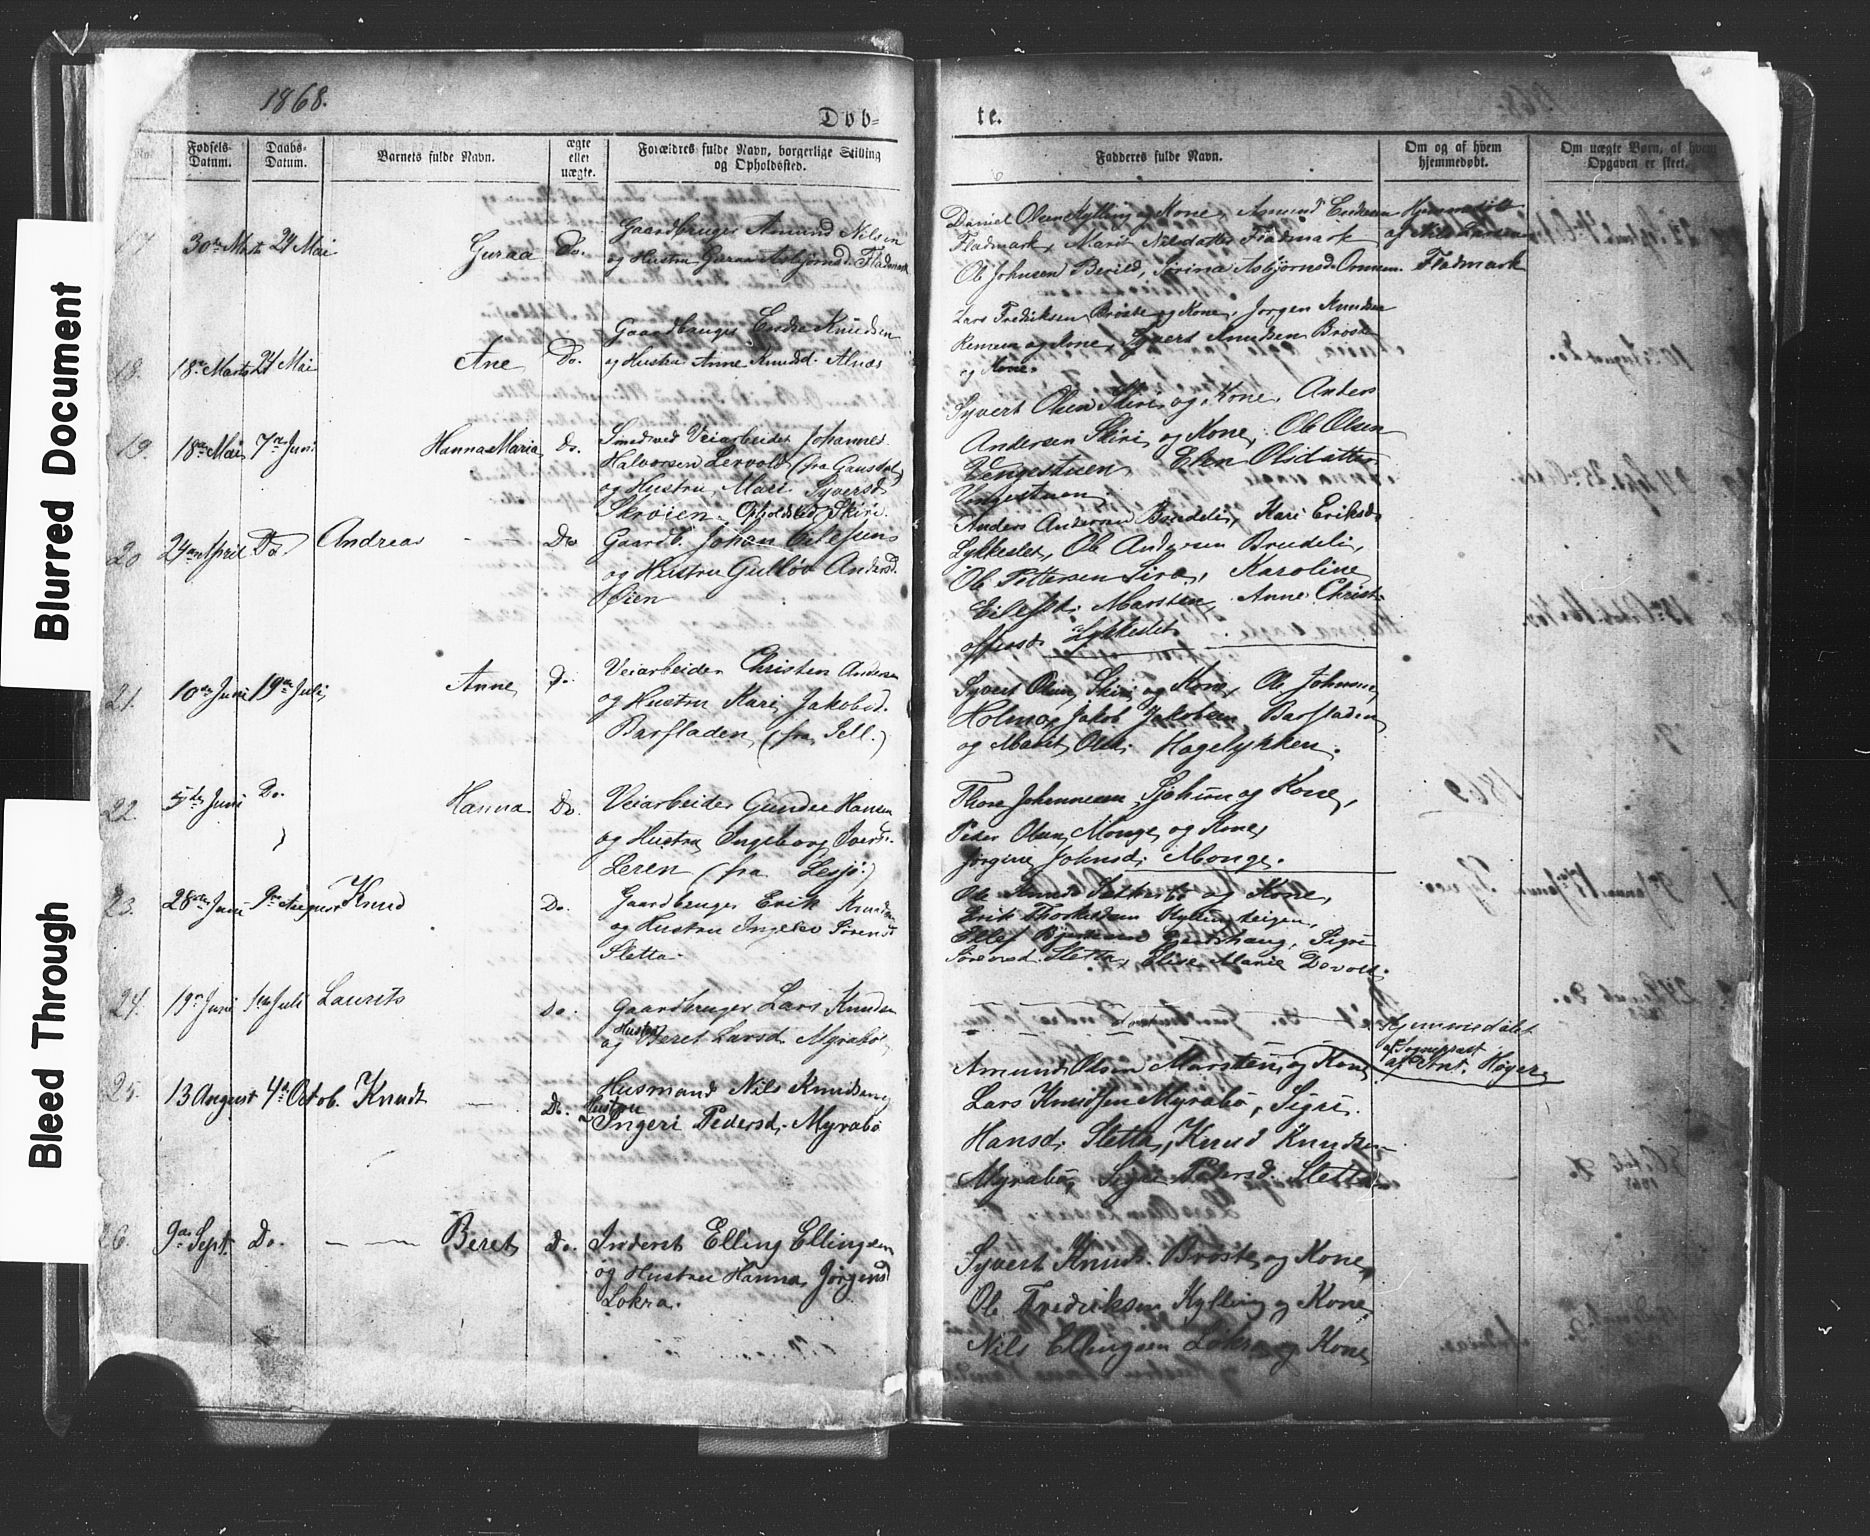 Blurred Document
Bleed Through
1868.
Døb-
te.
No.
Fødsels-
Datum.
Daabs-
Datum.
Barnets fulde Navn.
ægte
eller
uægte.
Forældres fulde Navn, borgerlige Stilling
og Opholdssted.
Fadderes fulde Navn.
Om og af hvem
hjemmedøbt.
Om uægte Børn, af hvem
Opgaven er skeet.
17 30te Marts 24 Mai Guraa Do.
Gaardbruger Amund Nilsen
og Hustru Guraa Asbjørnsd. Fladmark
Daniel Olsen Kylling og Kone, Amund Endresen
Fladmark, Marit Nilsdatter Fladmark
Ole Johnsen Berild, Sørina Asbjørnsd. Ormem.
Hjemmedøbt
af Nils Larsen
Fladmark
18. 18de Marts 24 Mai Ane Do.
Gaardbruger Endre Knudsen
og Hustru Anne Knudsd. Alnæs
Lars Fredriksen Brøste og Kone, Jørgen Knudsen
Remem og Kone, Syvert Knudsen Brøste
og Kone.
19. 18de Mai 7de Juni Hanna Maria Do.
Smed ved Veiarbeidet Johannes
Halvorsen Lervold (fra Gausdal)
og Hustru Mari Syversd.
Skrøien. Opholdsted Skiri.
Syvert Olsen Skiri og Kone, Anders
Andersen Skiri og Kone, Ole Olsen
Vengestuen, Elen Olsdatter
Vengestuen.
20 24de April Do Andreas Do
Gaardb. Johan Eilefsens
og Hustru Gulløv Andersd.
Øien
Anders Andersen Brudeli, Kari Eriksd.
Lykkeslet, Ole Andersen Brudeli,
Ole Pettersen Sira, Karoline
Eilefsd. Marsten, Anne Christ-
offersd. Lykkeslet
21. 10de Juni 19de Juli, Anne Do.
Veiarbeider Christen Andersen
og Hustru Kari Jakobsd.
Barfladen (fra Sell.)
Syvert Olsen Skiri og Kone, Ole Johnsen,
Holm og Jakob Jakobsen Barfladen
og Marit Olsd. Hagelykken.
22. 5te Juni Do. Hanna Do.
Veiarbeider Gunder Hansen
og Hustru Ingeborg Iversd.
Leren (fra Lesjø.)
Thore Johannesen og Kone,
Peder Olsen Monge og Kone,
Jørgine Johnsd. Monge.
23. 28de Juni 9de August Knud Do.
Gaardbruger Erik Knudsen
og Hustru Ingelev Sørensd
Sletta.
Ole Knuds og Kone,
Erik Kylling
Ellef Sigri
Sørensd. Sletta, Elise Marie Devold.
24. 19de Juni Juli Laurits Do.
Gaardbruger Lars Knudsen
og Hustru Beret Larsd. Myrabø.
Hjemmedøbt
af Sognepræst
Høyer
25. 13 August 4de Octob. Knudt Do.
Husmand Nils Knudsen
Hustru
Ingeri Pedersd. Myrabø
Amund Olsen Marstein og Kone
Lars Knudsen Myrabø, Sigri
Hansd. Sletta, Knud Knudsen
Myrabø, Sigri Pedersd. Sletta
26. 9de Sept. Do. Beret Do.
Inderst Elling Ellingsen
og Hustru Hanna Jørgensd
Løkra.
Syvert Knuds. Brøste og Kone,
Ole Fredriksen Kylling og Kone
Nils Ellingsen Løkra og Kone